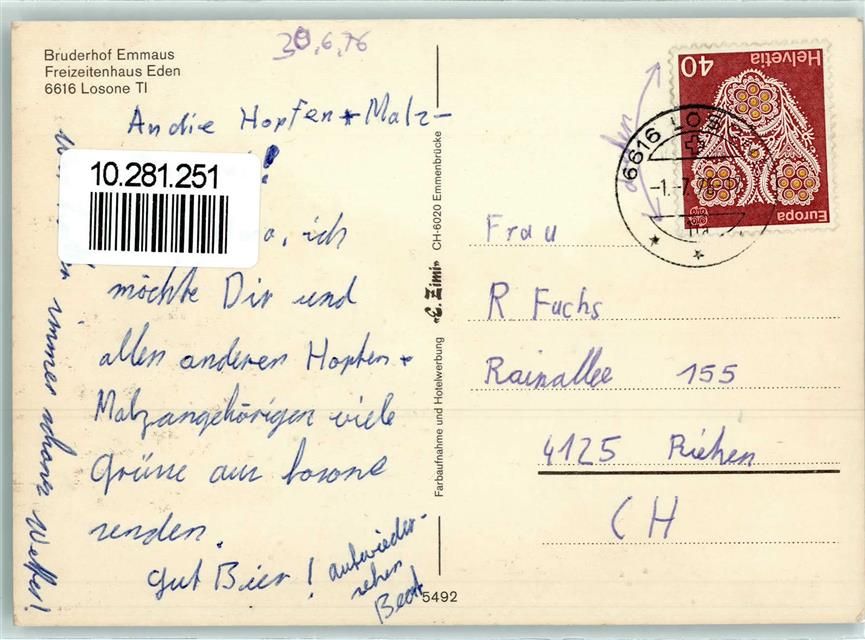 Bruderhof Emmaus
Freizeitenhaus Eden
6616 Losone TI
30.6.76
An die Hopfen + Malz-
!
10.281.251
, ich
möchte Dir und
allen anderen Hopfen +
Malzangehörigen viele
Grüsse aus Losone
senden.
Gut Bier!
aufwieder-
sehen
Beat
immer schönes Wetter!
Farbaufnahme und Hotelwerbung «E. Zimi» CH-6020 Emmenbrücke
5492
Helvetia
40
Europa
6616 LOS
-1.-7.
Frau
R Fuchs
Rainallee 155
4125 Riehen
CH